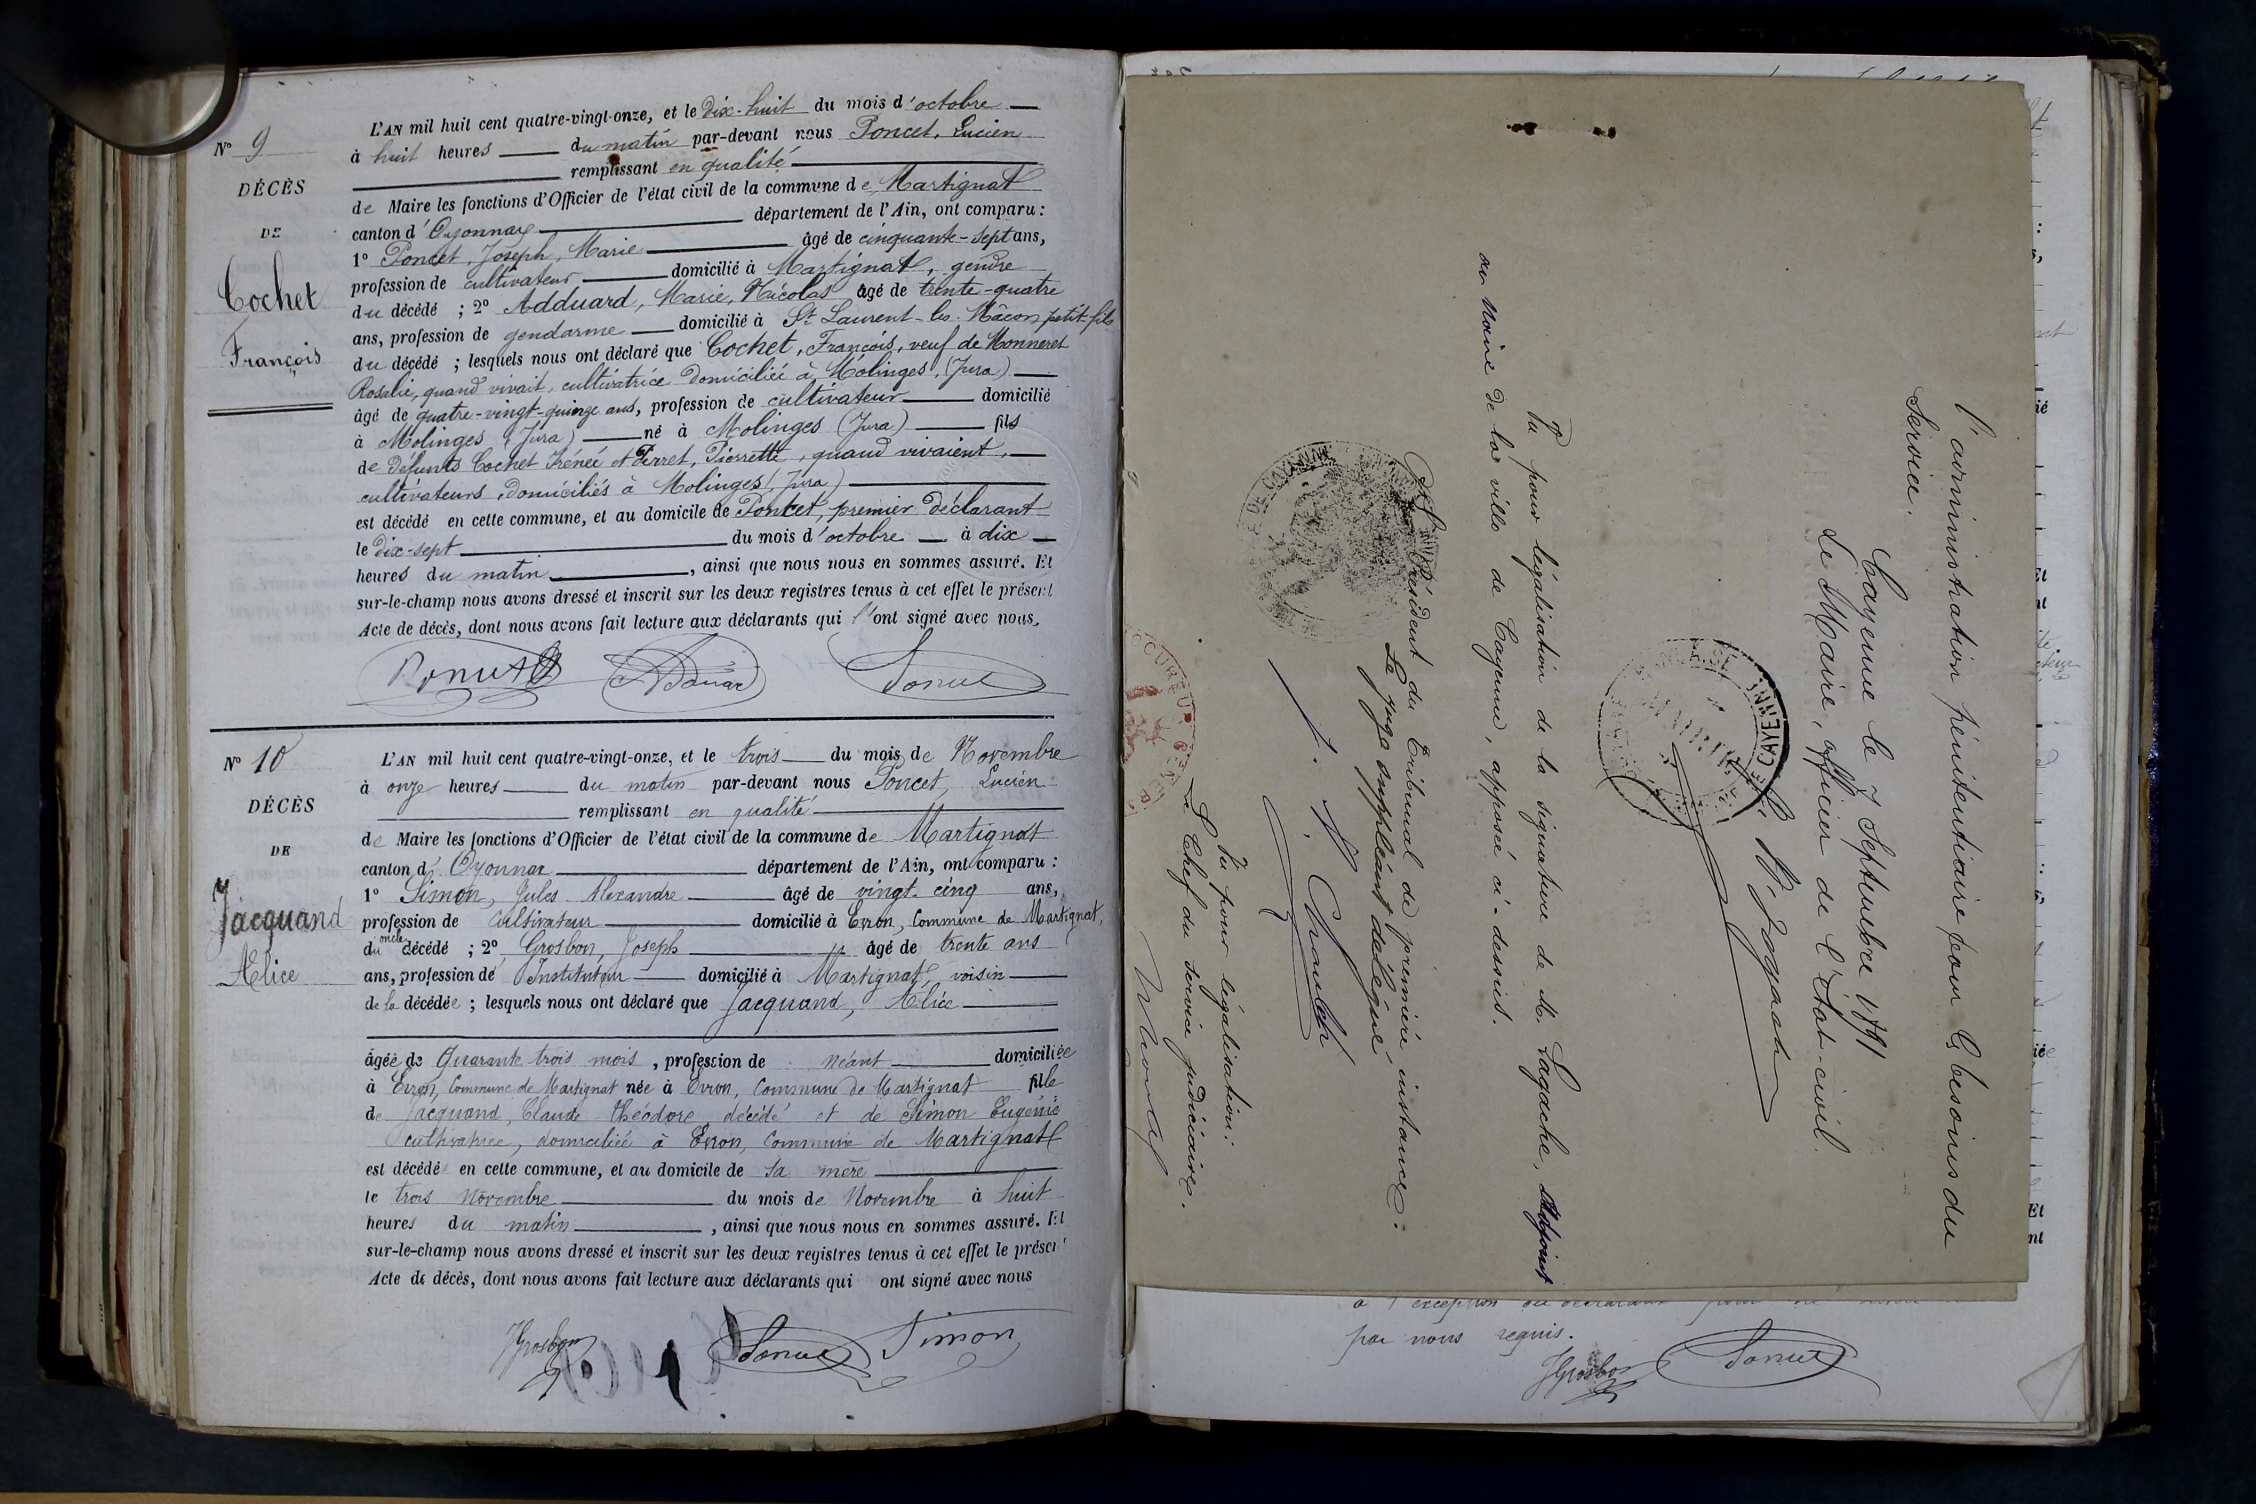 N° 9
DÉCÈS
DE
Cochet
François
L'AN mil huit cent quatre-vingt-onze, et le dix-huit du mois d'octobre
à huit heures du matin par-devant nous Poncet, Lucien
remplissant en qualité
de Maire les fonctions d'Officier de l'état civil de la commune de Martignat
canton d'Oyonnax département de l'Ain, ont comparu :
1° Poncet, Joseph, Marie âgé de cinquante-sept ans,
profession de cultivateur domicilié à Martignat, gendre
du décédé ; 2° Adduard, Marie, Nicolas âgé de trente-quatre
ans, profession de gendarme domicilié à St Laurent-les-Mâcon petit-fils
du décédé ; lesquels nous ont déclaré que Cochet, François, veuf de Monneret
Rosalie, quand vivait, cultivatrice domiciliée à Molinges, (Jura)
âgé de quatre-vingt-quinze ans, profession de cultivateur domicilié
à Molinges (Jura) né à Molinges (Jura) fils
de défunts Cochet Irénée et Perret, Pierrette, quand vivaient,
cultivateurs, domiciliés à Molinges (Jura)
est décédé en cette commune, et au domicile de Poncet, premier déclarant
le dix-sept du mois d'octobre à dix
heures du matin, ainsi que nous nous en sommes assuré. Et
sur-le-champ nous avons dressé et inscrit sur les deux registres tenus à cet effet le présent
Acte de décès, dont nous avons fait lecture aux déclarants qui l'ont signé avec nous,
N° 10
DÉCÈS
DE
Jacquand
Alice
L'AN mil huit cent quatre-vingt-onze, et le trois du mois de Novembre
à onze heures du matin par-devant nous Poncet, Lucien
remplissant en qualité
de Maire les fonctions d'Officier de l'état civil de la commune de Martignat
canton d'Oyonnax département de l'Ain, ont comparu :
1° Simon, Jules Alexandre âgé de vingt-cinq ans,
profession de cultivateur domicilié à Evron, Commune de Martignat,
oncle
du décédé ; 2° Grosbon, Joseph âgé de trente ans
ans, profession de Instituteur domicilié à Martignat, voisin
de la décédée ; lesquels nous ont déclaré que Jacquand, Alice
âgée de Quarante trois mois, profession de néant domiciliée
à Evron, Commune de Martignat née à Evron, Commune de Martignat fille
de Jacquand, Claude Théodore décédé et de Simon Eugénie
cultivatrice, domiciliée à Evron, Commune de Martignat
est décédé en cette commune, et au domicile de sa mère
le trois Novembre du mois de Novembre à huit
heures du matin, ainsi que nous nous en sommes assuré. Et
sur-le-champ nous avons dressé et inscrit sur les deux registres tenus à cet effet le présent
Acte de décès, dont nous avons fait lecture aux déclarants qui ont signé avec nous
JGrosbon
Poncet
Simon
l'administration pénitentiaire pour les besoins du
Service.
Cayenne le 7 Septembre 1891
Le Maire, officier de l'État-civil.
DE CAYENNE
Vu pour légalisation de la signature de M. Lagache, Adjoint
au Maire de la ville de Cayenne, apposée ci-dessus.
Président du Tribunal de première instance:
Le juge suppléant délégué
DE CAYENNE
Vu pour légalisation:
Le Chef du service judiciaire.
PROCUREUR GENERAL
par nous requis.
JGrosbon
Poncet